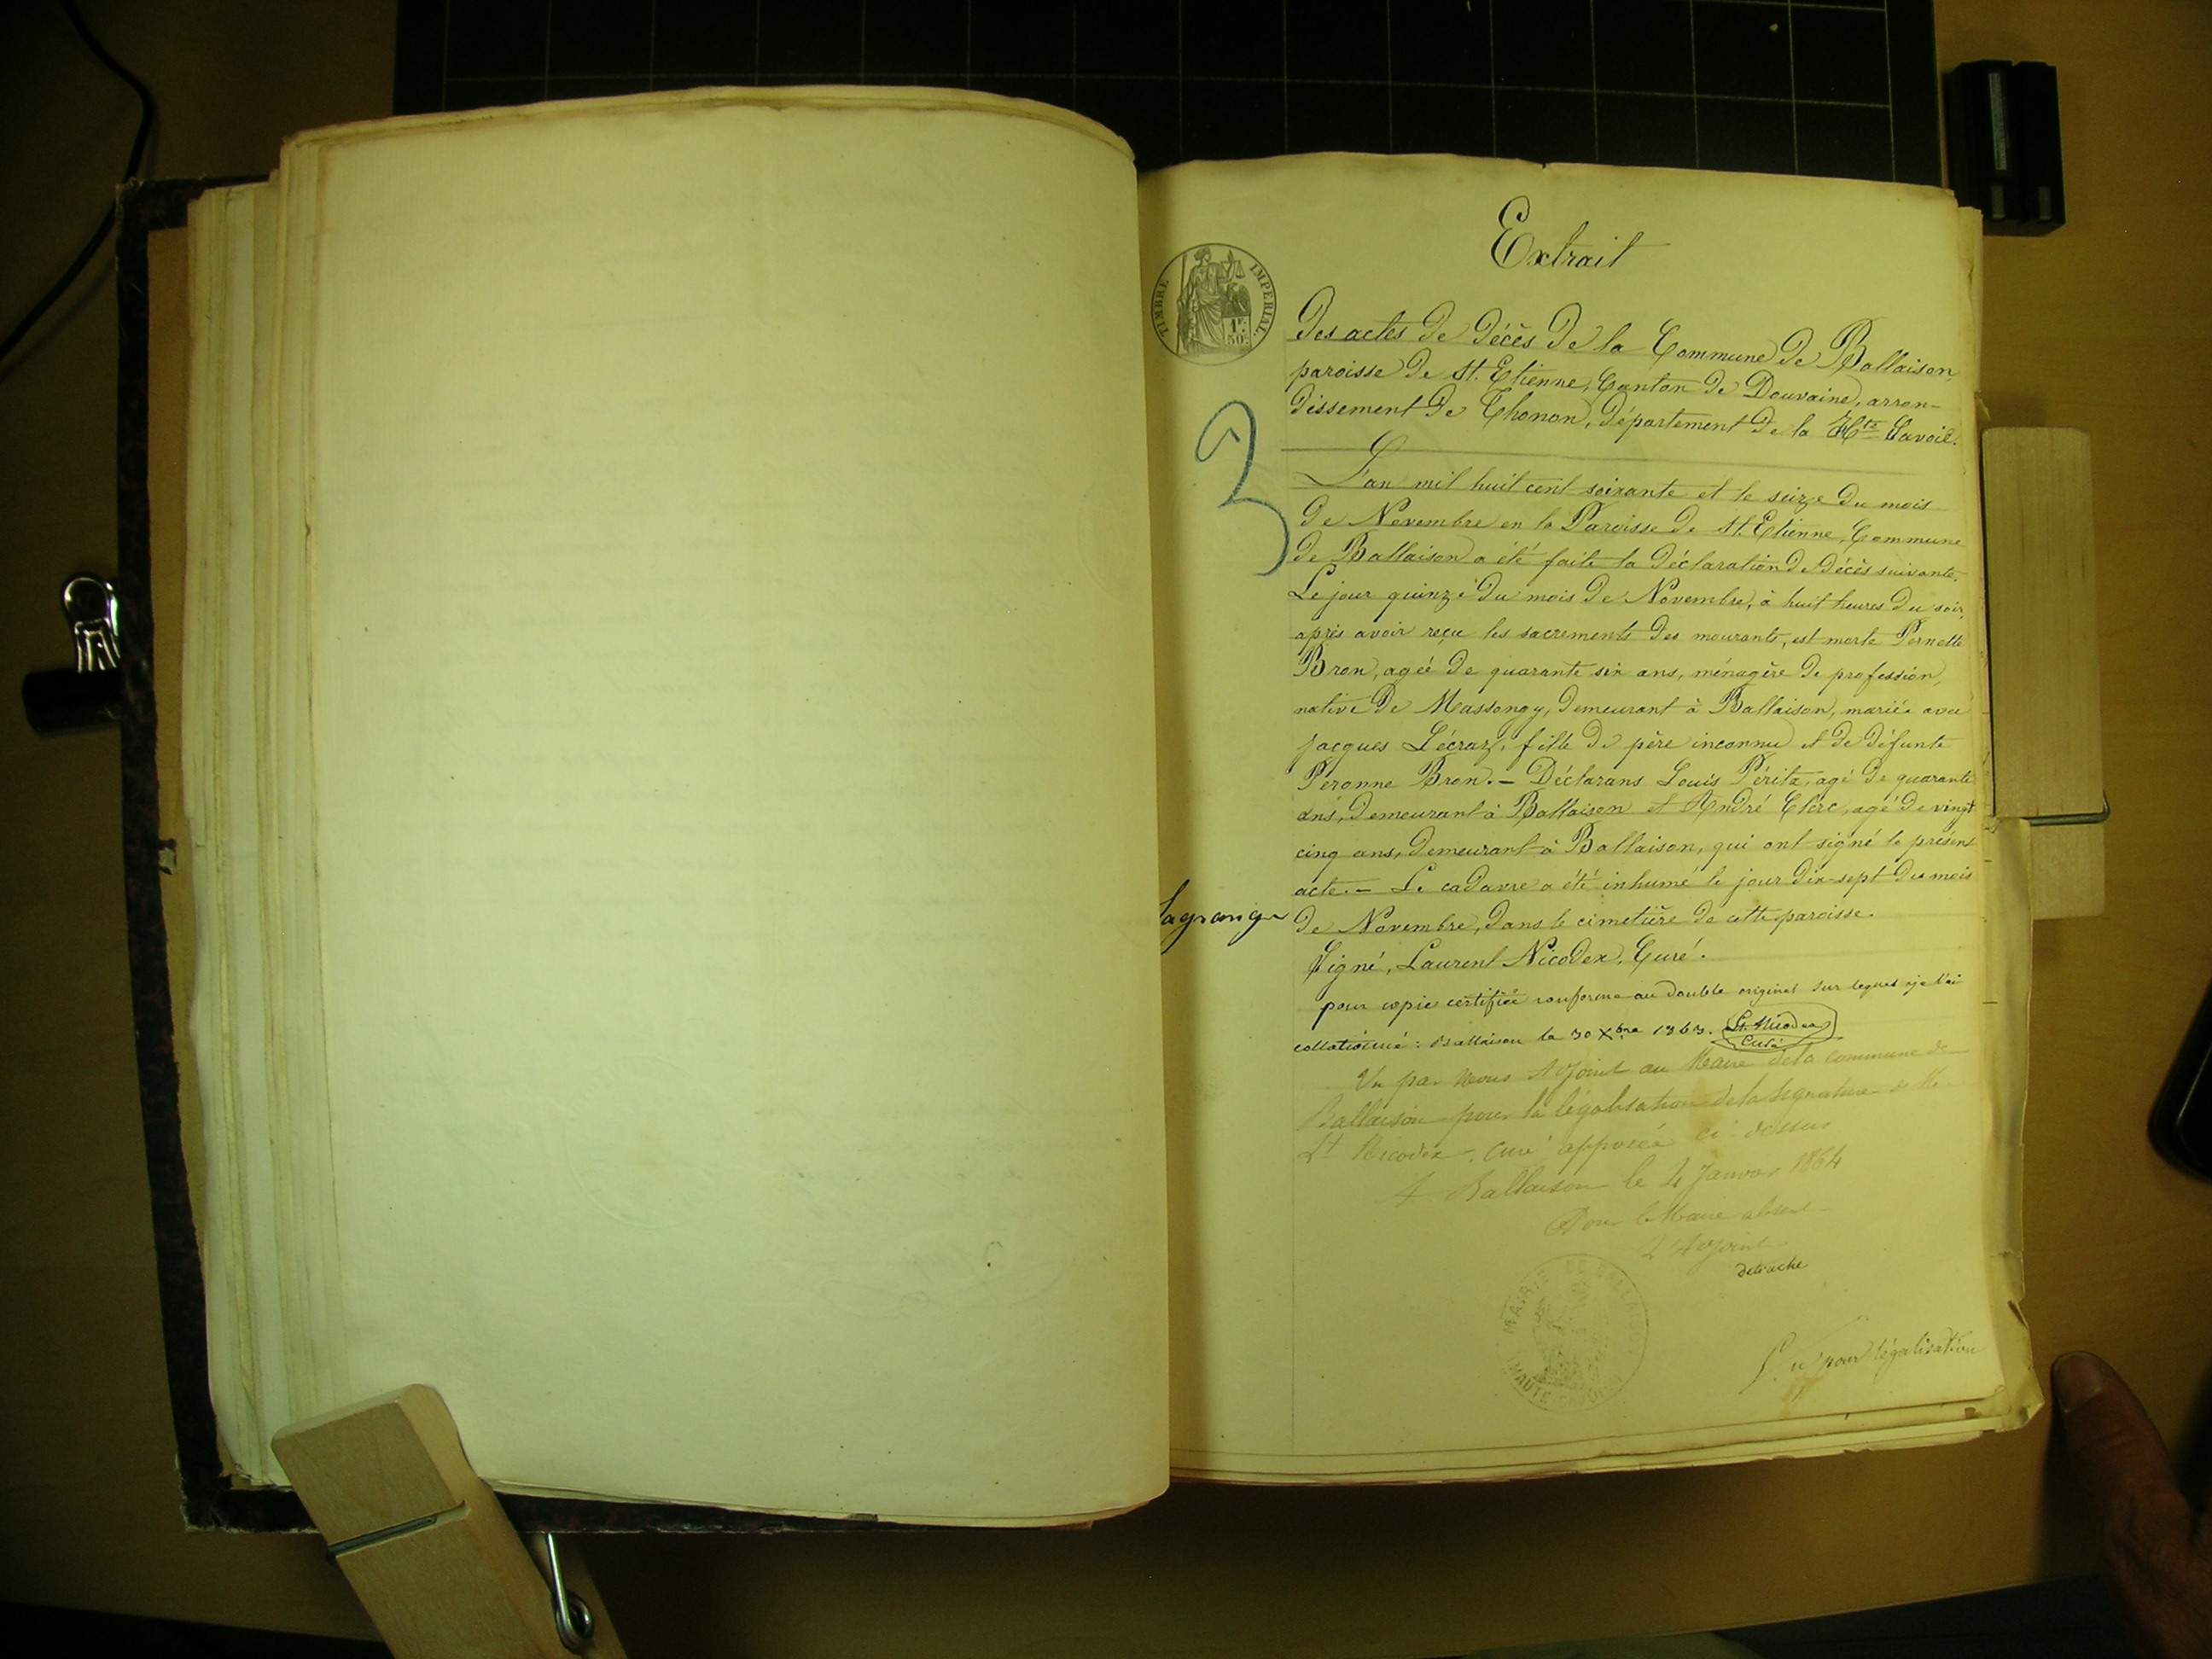 Extrait
TIMBRE IMPERIAL.
1F.
50c.
Des actes de décès de la Commune de Ballaison,
paroisse de St. Etienne, Canton de Douvaine, arron-
dissement de Thonon, département de la Hte Savoie.
3
L'an mil huit cent soixante et le seize du mois
de Novembre en la Paroisse de St. Etienne, Commune
de Ballaison a été faite la déclaration de décès suivante.
Le jour quinze du mois de Novembre, à huit heures du soir,
après avoir reçu les sacrements des mourants, est morte Pernette
Bron, agée de quarante six ans, ménagère de profession,
native de Massongy, demeurant à Ballaison, mariée avec
Jacques Lécraz, fille de père inconnu et de défunte
Peronne Bron. — Déclarans Louis Péritz, agé de quarante
ans, demeurant à Ballaison et André Clerc, agé de vingt
cinq ans, demeurant à Ballaison, qui ont signé le présent
acte. — Le cadavre a été inhumé le jour dix-sept du mois
lagrange
de Novembre, dans le cimetière de cette paroisse.
Signé, Laurent Nicodex, Curé.
pour copie certifiée conforme au double original sur lequel je l'ai
collationné : Ballaison le 30 Xbre 1863. Lt. Nicodex
Curé
Vu par Nous Adjoint au Maire de la commune de
Ballaison pour la légalisation de la signature de Mr.
Lt Nicodex, curé apposée ci dessus
A Ballaison le 4 Janvier 1864
Pour le Maire absent
L'Adjoint
detrache
MAIRIE DE BALLAISON
HAUTE SAVOIE
Vu pour légalisation